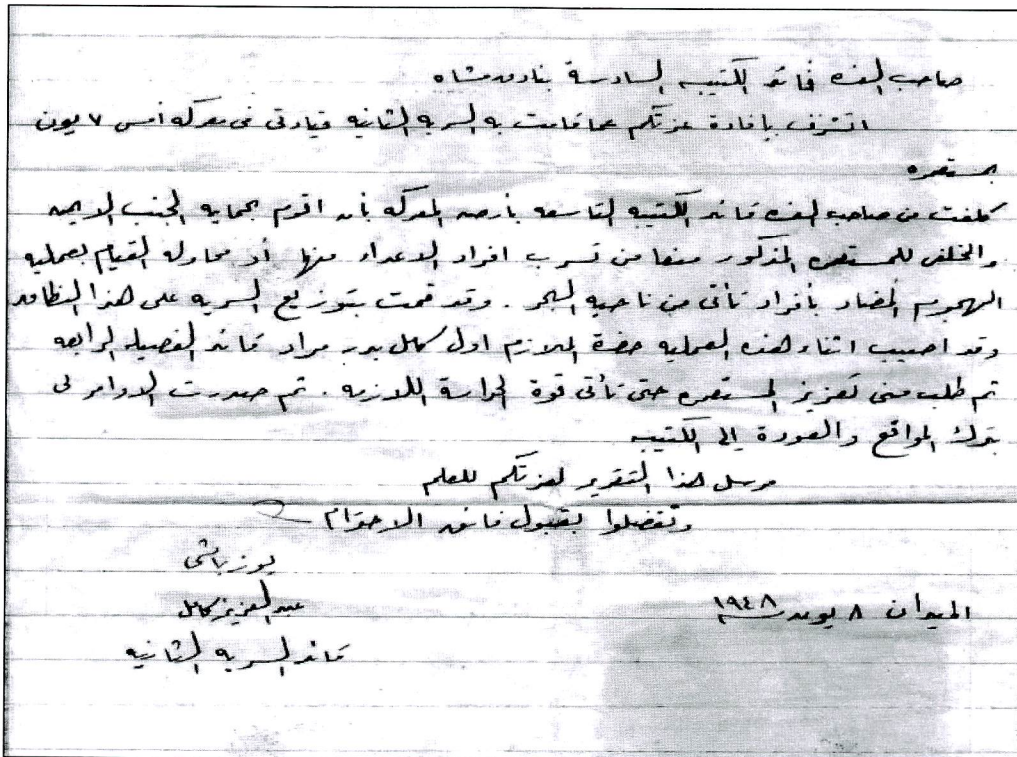 صاحب العزه قائد الكتيبه السادسة بنادق مشاه
اتشرف بإفادة عزتكم عما قامت به السريه الثانيه قيادتى فى معركه أمس ٧ يونى
بمستعمره
كلفت من صاحب العزه قائد الكتيبه التاسعه بأرض المعركه بأن اقوم بحمايه الجنب الايمن
والخلفى للمستعمره المذكور منعا من تسرب افراد الاعداء منها أو محاوله القيام بعمليه
الهجوم المضاد بأفراد تأتى من ناحيه البحر . وقد قمت بتوزيع السريه على هذا النظام
وقد اصيب اثناء هذه العمليه حضرة الملازم اول كامل بدر مراد قائد الفصيله الرابعه
ثم طلب منى تعزيز المستعمره حتى تأتى قوة الحراسة اللازمه . ثم صدرت الاوامر لى
بترك المواقع والعودة إلى الكتيبه
مرسل هذا التقرير لعزتكم للعلم
وتفضلوا بقبول فائق الاحترام
يوزباشى
عبد العزيز كامل
قائد السريه الثانيه
الميدان ٨ يونيه سنة ١٩٤٨